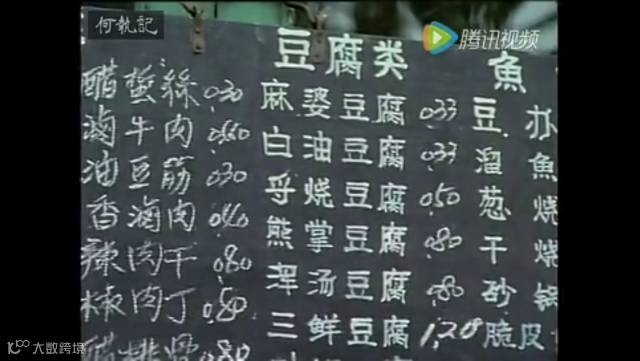 何執記
腾讯视频
醋蜇絲 0.30
滷牛肉
油豆筋 0.30
香滷肉 0.40
辣肉干 0.80
椒肉丁 0.80
醋排骨 0.80
豆腐类
麻婆豆腐 0.33
白油豆腐 0.33
乎烧豆腐 0.50
熊掌豆腐 0.80
浑汤豆腐 0.80
三鲜豆腐 1.20
魚
豆办
溜魚
葱烧
干烧
砂锅
脆皮
大数跨境